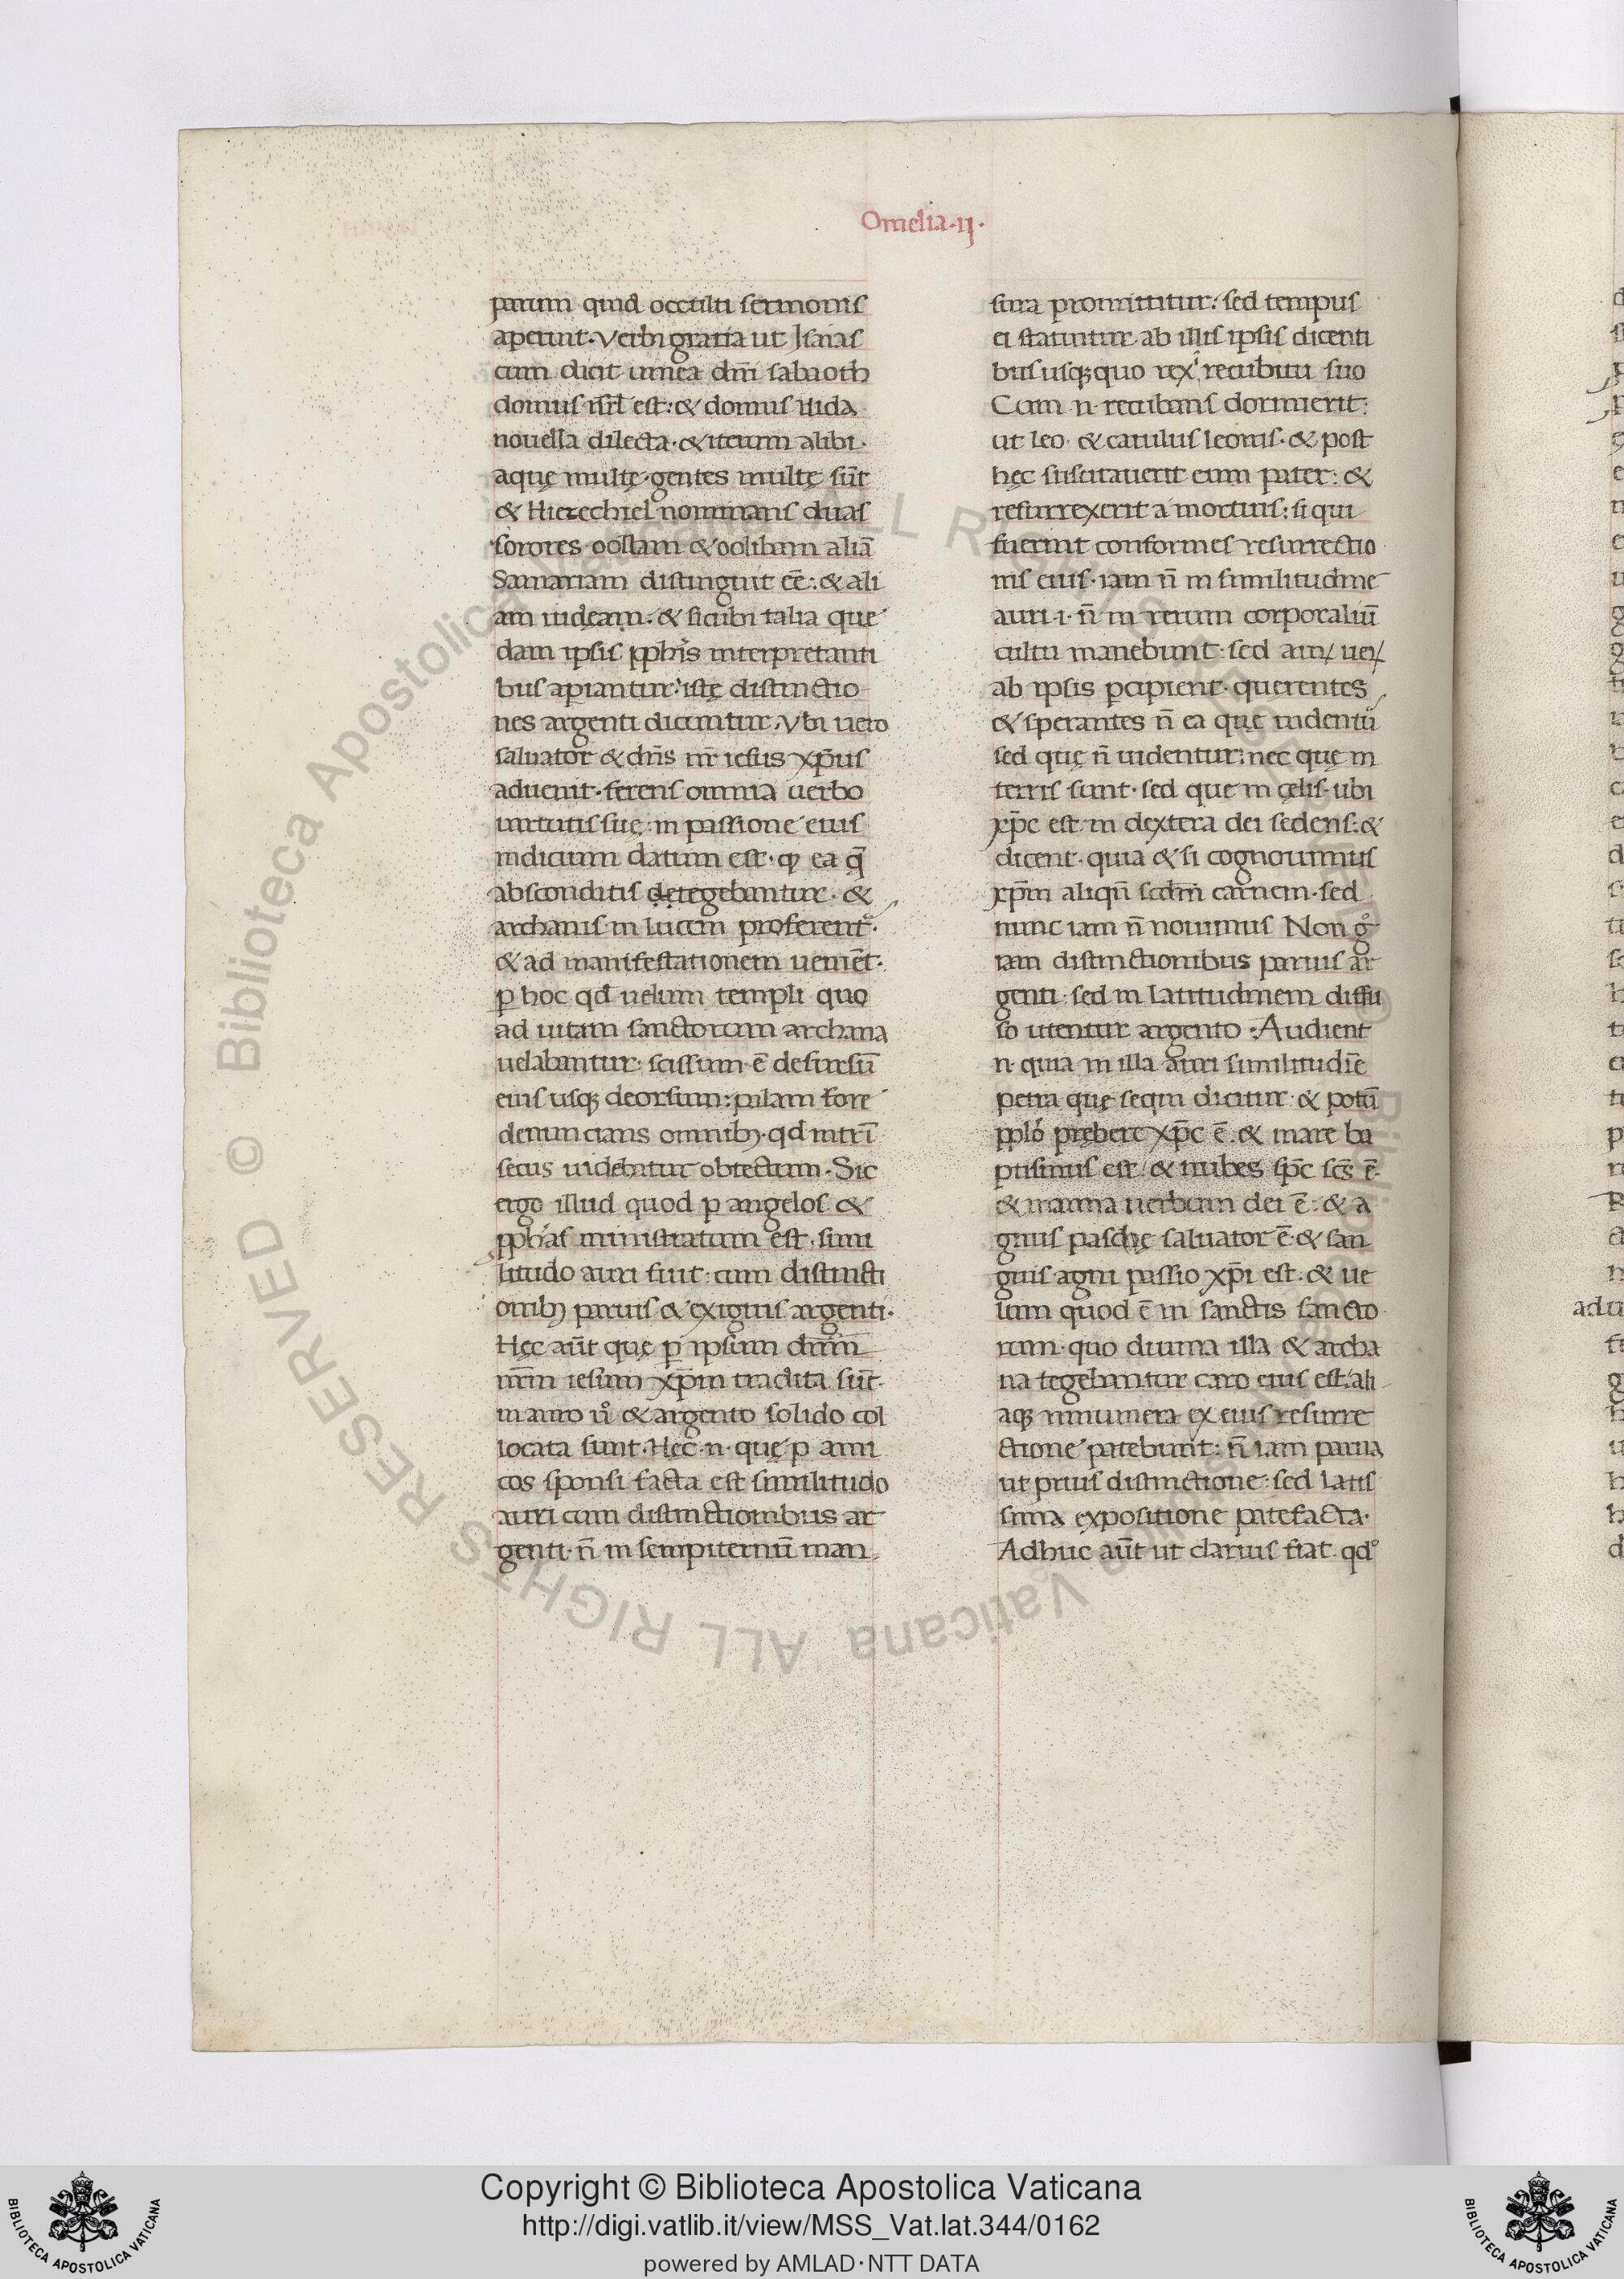 Omelia·ij·
parum quid occulti sermonis
aperiunt·Verbi gratia ut Isaias
cum dicit uinea dñi sabaoth
domus isrl est:& domus iuda
nouella dilecta·&iterum alibi·
aquę multę·gentes multę sūt
& Hiezechiel nominans duas
sorores oollam &oolibam aliā
Samariam distinguit eē:& ali
am iudęam:& sicubi talia que
dam ipsis ꝓphis interpretanti
bus apiantur: istę distinctio
nes argenti dicuntur·Vbi uero
saluator & dñs nr̄ iesus xp̄us
aduenit·ferens omnia uerbo
uirtutis suę·in passione eius
indicium datum est·ꝙ ea q̄
absconditis detegebantur·&
archanis in lucem proferent̄·
& ad manifestationem ueniēt·
ꝑ hoc qd̄ uelum templi quo
ad uitam sanctorum archana
uelabantur·scissum·ē desursū
eius usqꝫ deorsum:palam fore
denuncians omnibꝫ·qd̄ intrī
secus uidebatur obtectum·Sic
ergo illud quod ꝑ angelos &
ꝓphas ministratum est·simi
litudo auri fuit:cum distincti
onibꝫ paruis &exiguis argenti·
Hęc aūt quę ꝑ ipsum dn̄m
nr̄m iesum xp̄m tradita sūt·
in auro ů & argento solido col
locata sunt·Hęc·n·quę ꝑ ami
cos sponsi facta est similitudo
auri cum distinctionibus ar
genti·n̄ in sempiternū man
sura promittitur:sed tempus
ei statuitur·ab illis ipsis dicenti
bus usqꝫquo rex recubitu suo
Cum n·recubans dormierit:
ut leo·& catulus leonis·& post
hęc suscitauerit eum pater:&
resurrexerit a mortuis:si qui
fuerint conformes resurrectio
nis eius·iam n̄ in similitudine
auri·i·n̄ in rerum corporaliū
cultu manebunt:sed aurū uerū
ab ipsis ꝑcipient·querentes
& sperantes n̄ ea quę uidentū
sed quę n̄ uidentur:nec quę in
terris sunt·sed que in cęlis·ubi
xp̄c est in dextera dei sedens:&
dicent·quia & si cognouimus
xp̄m aliqn̄ scdm̄ carnem·sed
nunc iam n̄ nouimus Non g̊
iam distinctionibus paruis ar
genti:sed in latitudinem diffu
so utentur argento·Audient
n·quia in illa auri similitudīe
petra quę sequi dicitur·& potū
pplo prębere xp̄c ē·& mare ba
ptismus est·& nubes sp̄c scs̄ ē·
& manna uerbum dei ē·& a
gnus paschę saluator ē·& san
guis agni passio xp̄i est·& ue
lum quod ē in sanctis sancto
rum·quo diuina illa & archa
na tegebantur caro eius est·ali
aqꝫ innumera ex eius resurre
ctione patebunt:n̄ iam parua
ut prius distinctione:sed latis
sima expositione patefacta·
Adhuc aūt ut clarius fiat·qd̊
adu
Copyright © Biblioteca Apostolica Vaticana
http://digi.vatlib.it/view/MSS_Vat.lat.344/0162
powered by AMLAD·NTT DATA
BIBLIOTECA APOSTOLICA VATICANA
BIBLIOTECA APOSTOLICA VATICANA
© Biblioteca Apostolica Vaticana ALL RIGHTS RESERVED
© Biblioteca Apostolica Vaticana ALL RIGHTS RESERVED